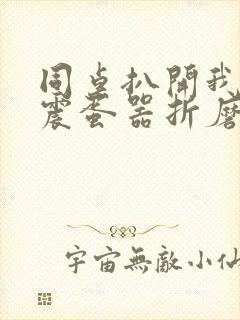 同桌扒開我
震蛋器折磨
宇宙無敵小仙